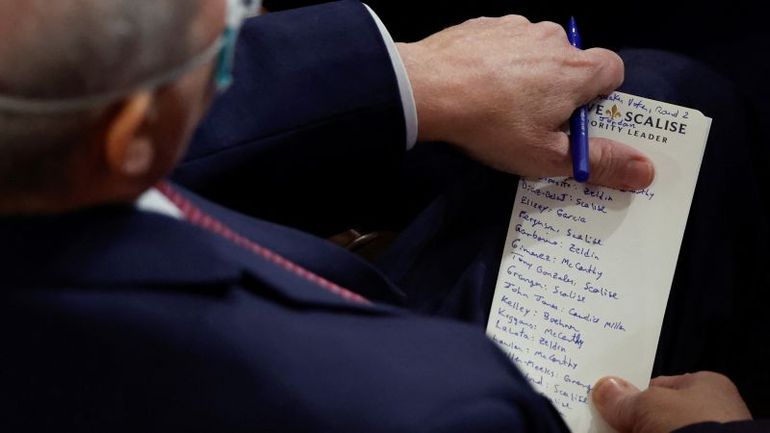 peaker Votes, Round 2
Jordan
VE SCALISE
ORITY LEADER
Diaz-Balart: Scalise
Ellzey: Garcia
Ferguson: Scalise
Garbarino: Zeldin
Gimenez: McCarthy
Tony Gonzales: Scalise
Granger: Scalise
John James: Candice Miller
Kelley: Boehner
Kiggans: McCarthy
LaLota: Zeldin
McCarthy
ler-Meeks: Granger
nd: Scalise